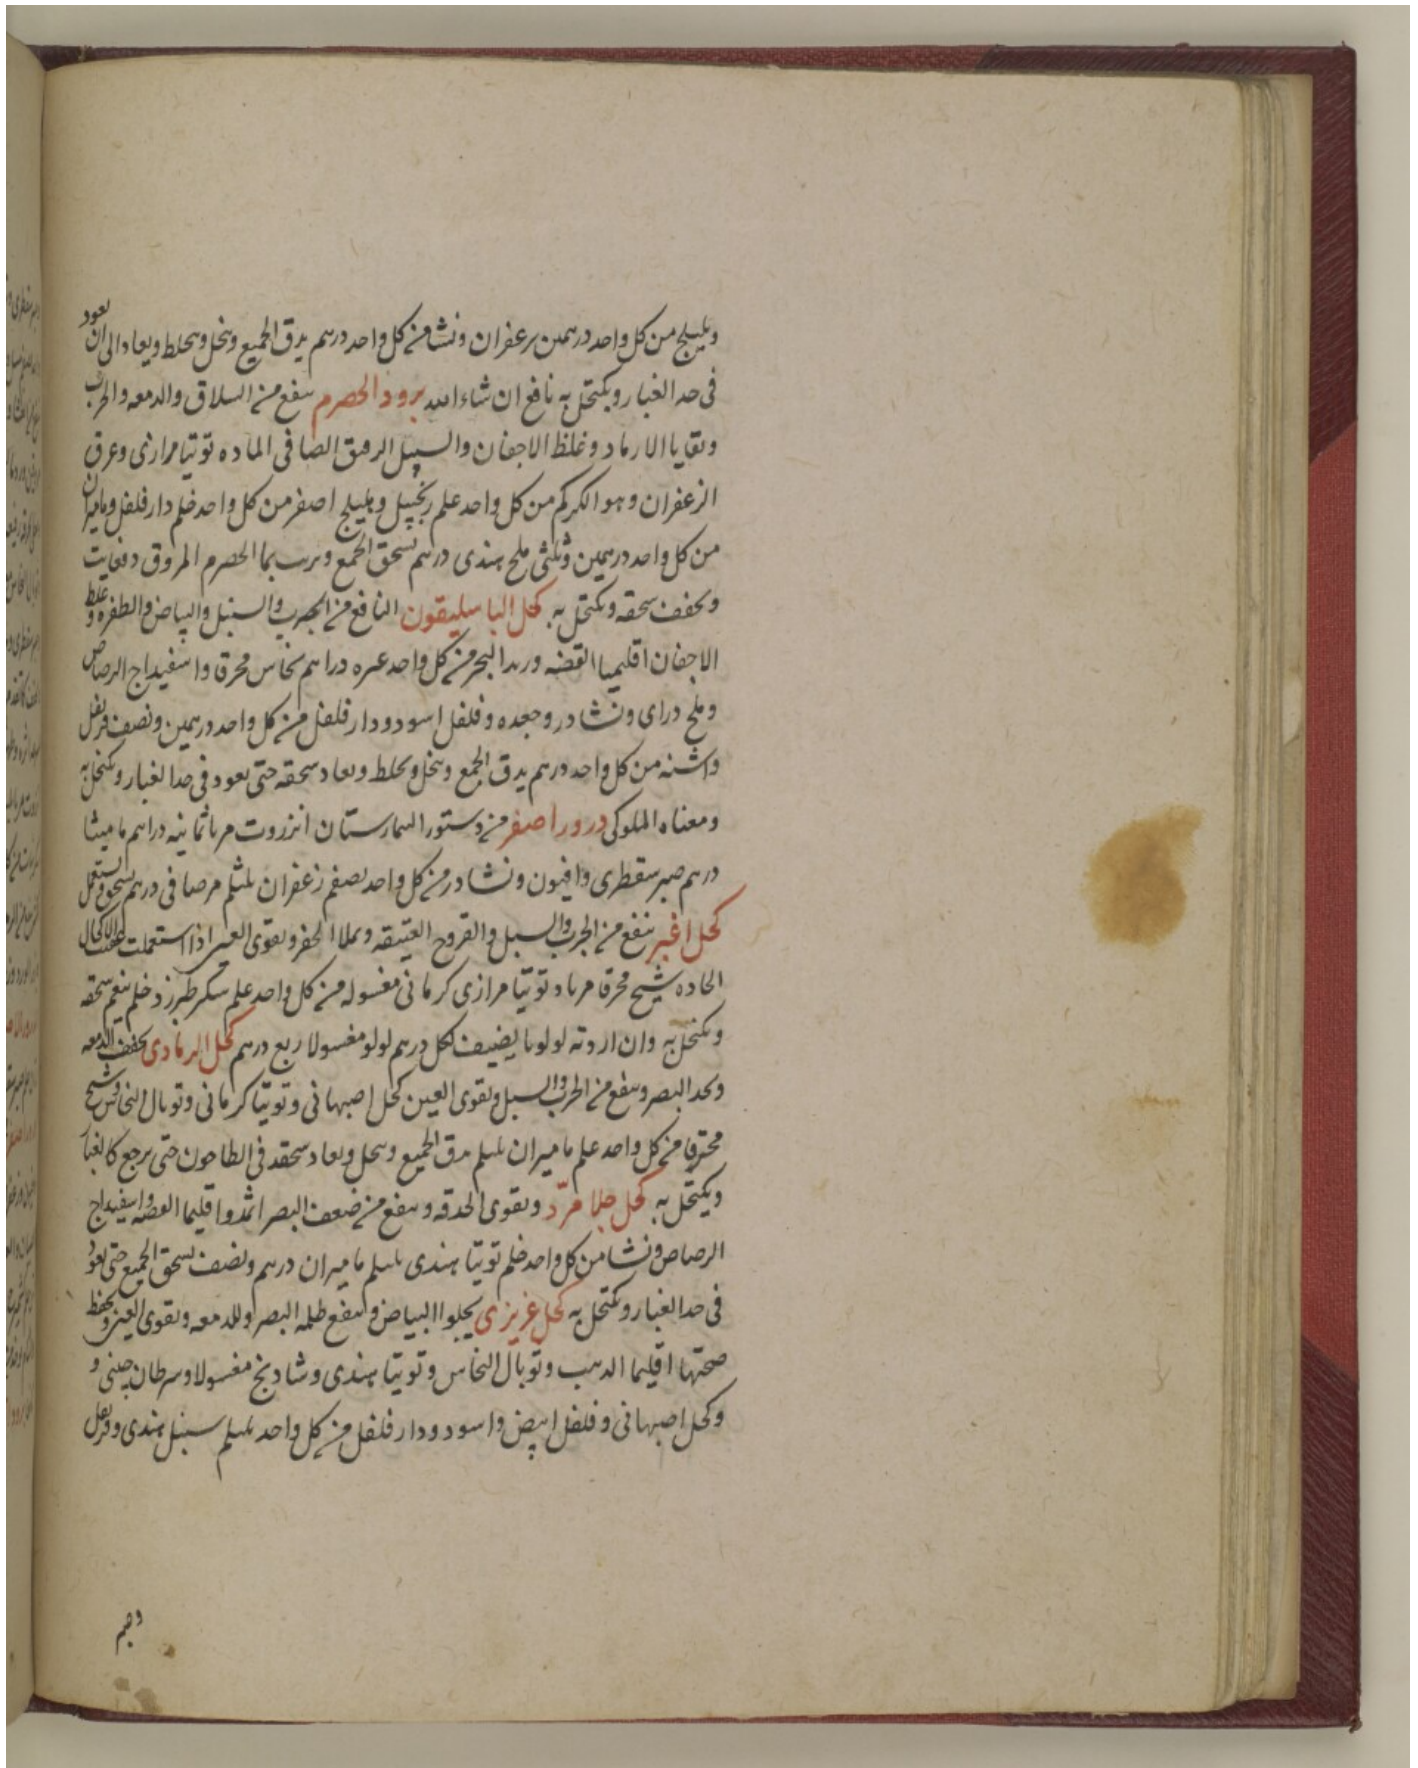 وبليلج من كل واحد درهمين زعفران ونشا من كل واحد درهم يدق الجميع وينخل ويخلط ويعاد الى ان يعود
فى حد الغبار ويكتحل به نافع ان شاء الله برود الحصرم ينفع من السلاق والدمعه والجرب
وبقايا الارماد وغلظ الاجفان والسبل الرقيق الصافى الماده توتيا مرازى وعرق
الزعفران وهو الكركم من كل واحد علم زنجبيل وهليلج اصفر من كل واحد خلم دارفلفل وماميران
من كل واحد درهمين وثلثى ملح هندى درهم يسحق الجميع ويرب بما الحصرم المروق دفعات
ويجفف سحقه ويكتحل به كحل الباسليقون النافع من الجرب والسبل والبياض والظفره وغلظ
الاجفان اقليميا الفضه وزبد البحر من كل واحد عشره دراهم نحاس محرقا واسفيداج الرصاص
وملح درانى ونشادر وجعده وفلفل اسود ودارفلفل من كل واحد درهمين ونصف قرنفل
واشنه من كل واحد درهم يدق الجميع وينخل ويخلط ويعاد سحقه حتى يعود فى حد الغبار ويكتحل به
ومعناه الملوكى درور اصفر من دستور البيمارستان انزروت مربا ثمانيه دراهم ماميثا
درهم صبر سقطرى وافيون ونشادر من كل واحد نصفم زعفران ثلثم مرصافى درهم يسحق ويستعمل
كحل اغبر ينفع من الجرب والسبل والقروح العتيقه ويملا الحفر ويقوى العين اذا استعملت عقب الاكحال
الحاده شيح محرقا مرباد توتيا مرازى كرمانى مغسوله من كل واحد علم سكر طبرزد خلم ينعم سحقه
ويكتحل به وان اردته لولويا يضيف لكل درهم لولو مغسولا ربع درهم كحل الرمادى يجفف الدمعه
ويحد البصر وينفع من الجرب والسبل ويقوى العين كحل اصبهانى وتوتيا كرمانى وتوبال النحاس وشيح
محترقا من كل واحد علم ماميران يدق الجميع وينخل ويعاد سحقه فى الطاحون حتى يرجع كالغبار
ويكتحل به كحل جلا مبرّد ويقوى الحدقه وينفع من ضعف البصر اثمد واقليميا الفضه واسفيداج
الرصاص ونشا من كل واحد خلم توتيا هندى ماميران درهم ونصف يسحق الجميع حتى يعود
فى حد الغبار ويكتحل به كحل غريزى يجلوا البياض وينفع ظلمه البصر وللدمعه ويقوى العين ويحفظ
صحتها اقليما الذهب وتوبال النحاس وتوتيا هندى وشادنج مغسولا وسرطان صينى و
وكحل اصبهانى وفلفل ابيض واسود ودارفلفل من كل واحد سنبل هندى وقرنفل